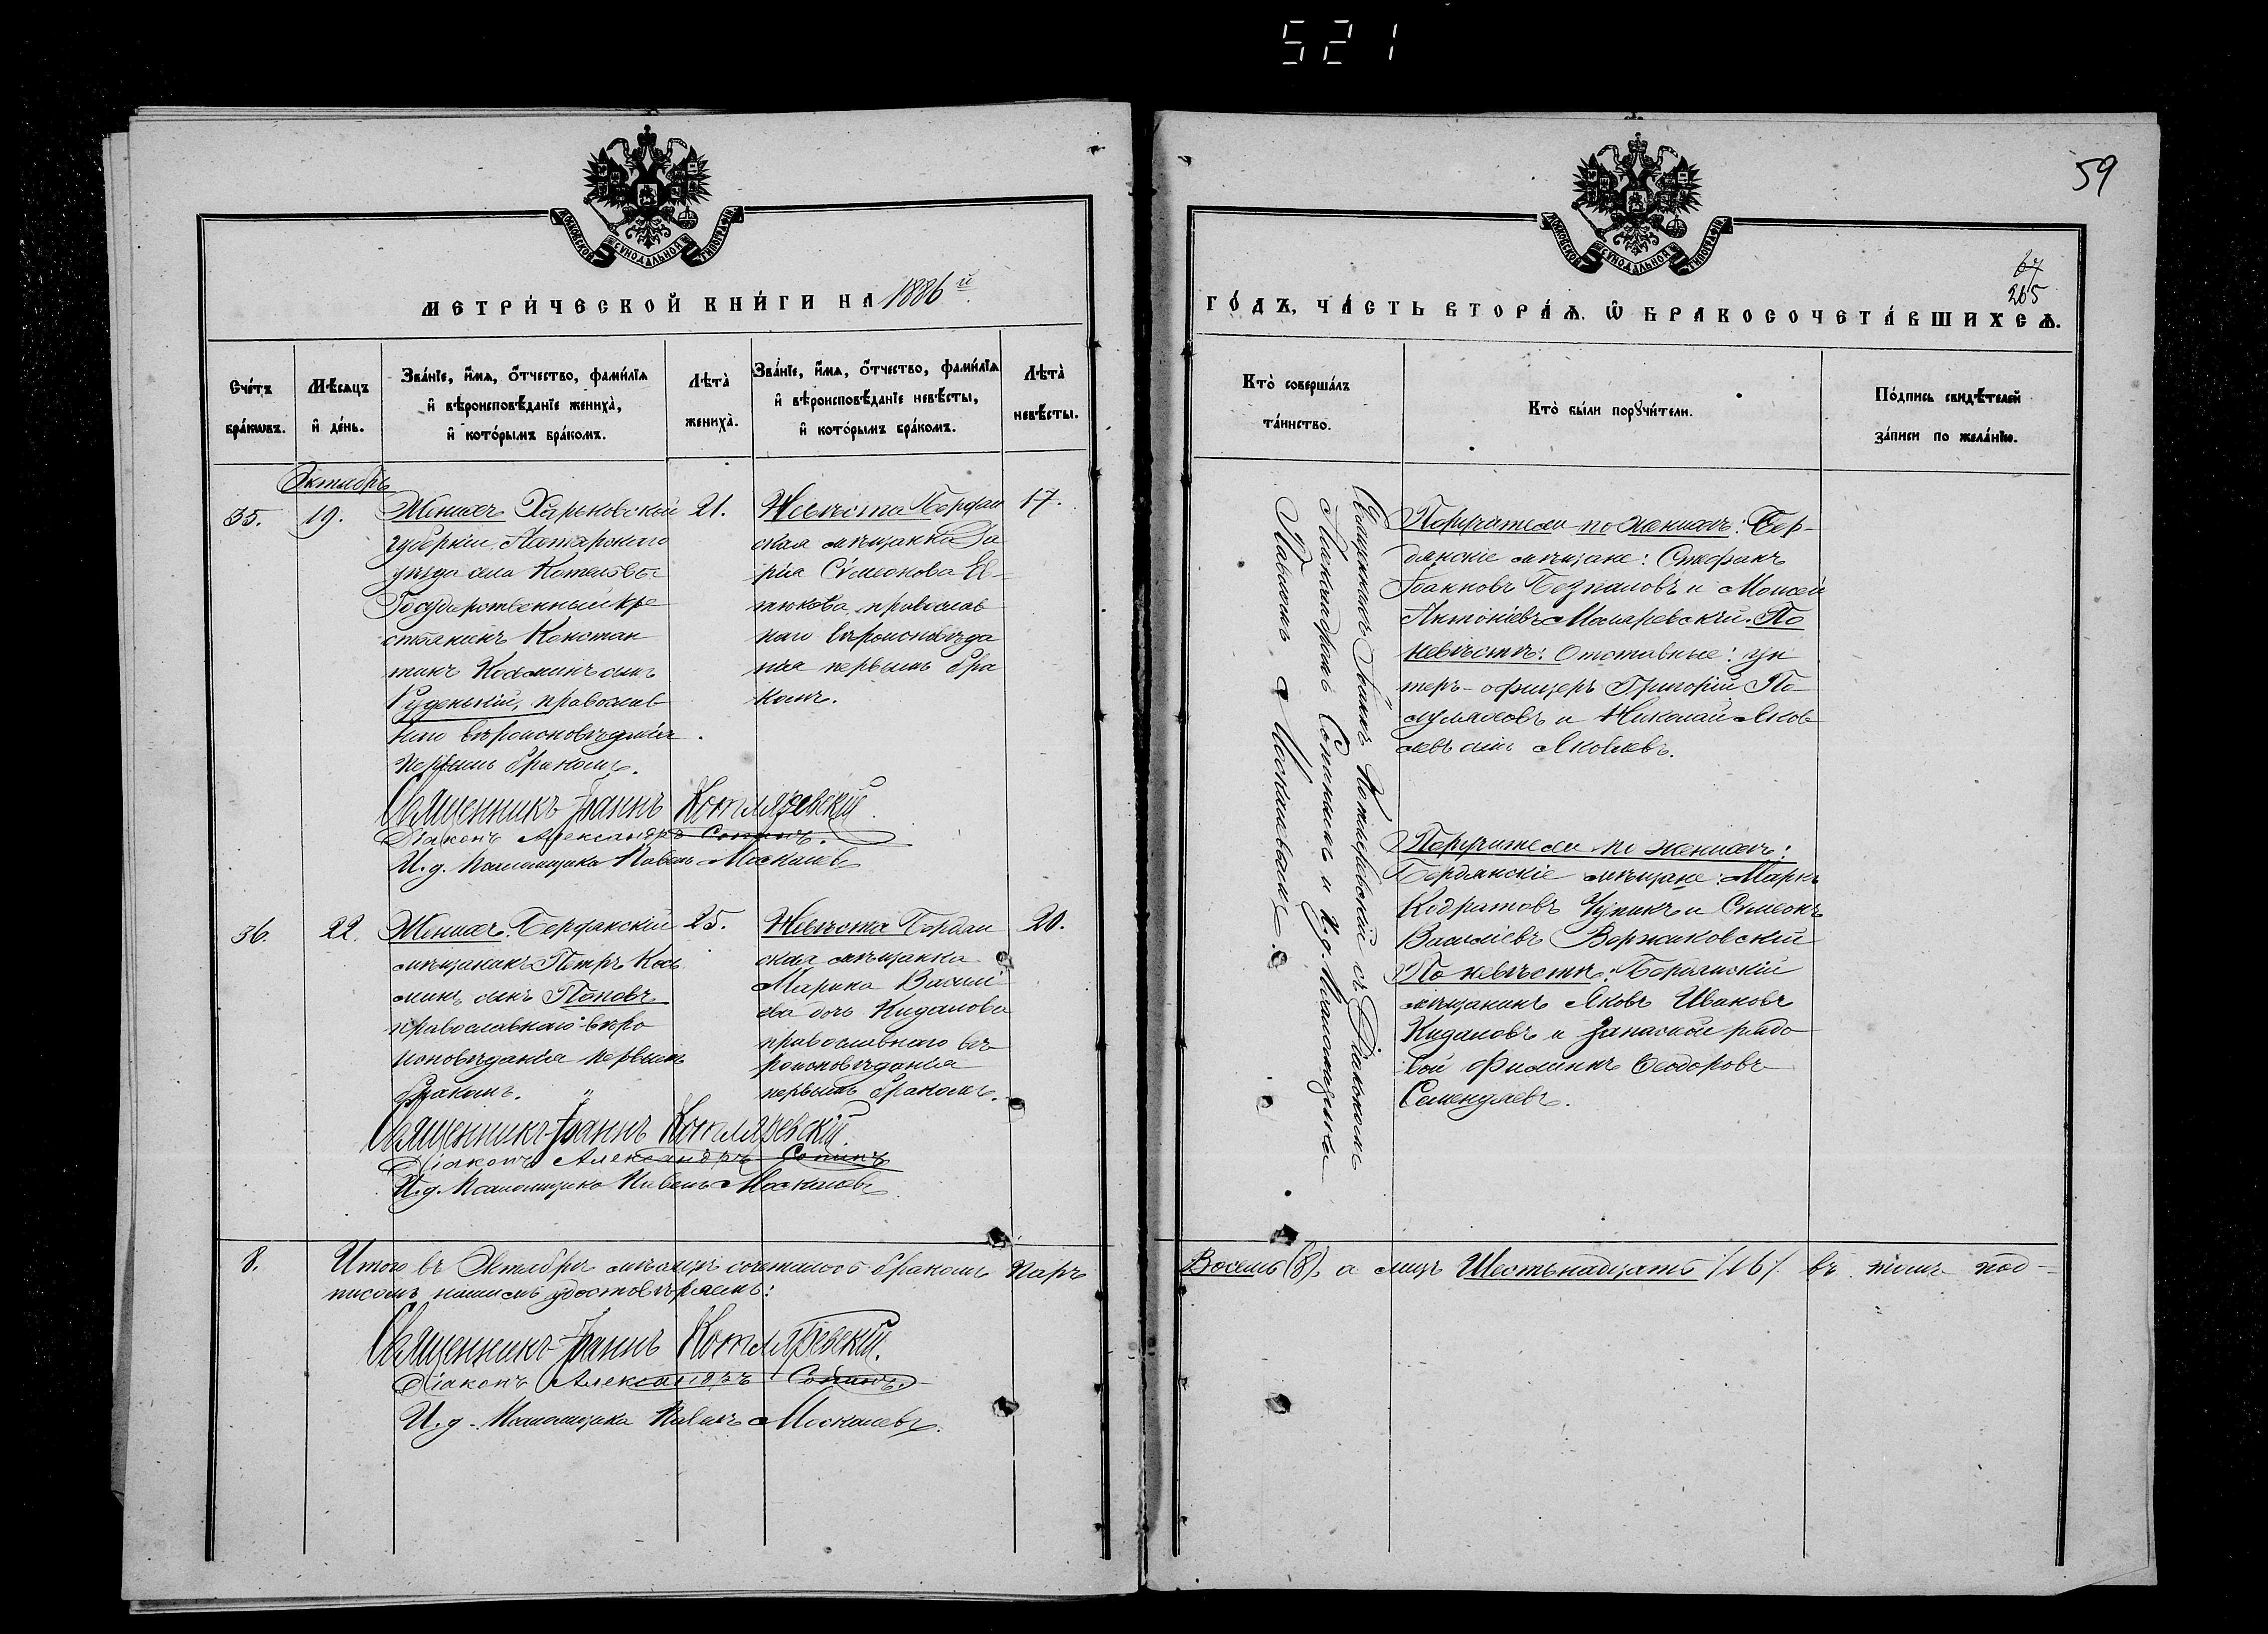 521
59
67
265
МОСКОВСКОЙ СѴНОДАЛЬНОЙ ТИПОГРАФІИ
МЕТРИ́ЧЕСКОЙ КНИ́ГИ НА 1886й
Сче́тъ бра́кѡвъ.
Мѣ́сяцъ и҆ де́нь.
Зва́нїе, и҆́мѧ, ѻ҆́тчество, фами́лїѧ
и҆ вѣроисповѣ́данїе жениха̀,
и҆ кото́рымъ бра́комъ.
Лѣта̀ жениха̀.
Зва́нїе, и҆́мѧ, ѻ҆́тчество, фами́лїѧ
и҆ вѣроисповѣ́данїе невѣ́сты,
и҆ кото́рымъ бра́комъ.
Лѣта̀ невѣ́сты.
Октябрь
35.
19.
Женихъ Харьковской
губерніи,
уѣзда села Котельвы
Государственный кре
стьянинъ Констан
тинъ Косминъ сынъ
Руденькій, православ
наго вѣроисповѣданія
первымъ бракомъ.
21.
Невѣста Бердян
ская мѣщанка Да
рія Сѵмеонова Ев-
православ
наго вѣроисповѣда
нія первымъ бра
комъ.
17.
Священникъ Іоаннъ Котляревскій.
Діаконъ Александръ Сопинъ.
И.д. Псаломщика Павелъ Москалевъ
36.
22.
Женихъ. Бердянскій
мѣщанинъ Петръ Кос
минъ сынъ Поповъ
православнаго вѣро
исповѣданія первымъ
бракомъ. "
25.
Невѣста Бердян
ская мѣщанка
Марина Васили
ева дочь Кидалова
православнаго вѣ
роисповѣданія
первымъ бракомъ.
20.
Священникъ Іоаннъ Котляревскій.
Діаконъ Александръ Сопинъ
И.д. Псаломщика Павелъ Москалевъ
8.
Итого въ Октябрѣ мѣсяцѣ сочеталось бракомъ паръ
писомъ нашимъ удостовѣряемъ:
Священникъ Іоаннъ Котляревскій.
Діаконъ Александръ Сопинъ.
И.д. Псаломщика Павелъ Москалевъ.
МОСКОВСКОЙ СѴНОДАЛЬНОЙ ТИПОГРАФІИ
ГО́ДЪ, ЧА́СТЬ ВТОРА́Ѧ, Ѡ҆ БРАКОСОЧЕТА́ВШИХСѦ.
Кто̀ соверша́лъ
та́инство.
Кто̀ бы́ли порꙋчи́тели.
По́дпись свидѣ́телей
за́писи по жела́нїю.
Священникъ Іоаннъ Котляревскій съ Діакономъ
Александромъ Сопинымъ и И.д. Псаломщика
Павломъ Москалевымъ.
Поручители по женихѣ: Бер-
дянскіе мѣщане: Стефанъ
Іоанновъ Безпаловъ и Моисей
Антоніевъ Макаревскій. По
невѣстѣ: Отставные: ун
теръ-офицеръ Григорій По-
и Николай Яков
левъ сынъ Яковлевъ.
Поручители по женихѣ:
Бердянскіе мѣщане: Маркъ
Кодратовъ Чупинъ и Сѵмеонъ
Василіевъ Воржаковскій
По невѣстѣ: Бердянскій
мѣщанинъ Яковъ Ивановъ
Кидаловъ и запасной рядо
вой Филипъ Ѳеодоровъ
Семендяевъ.
Восемь (8), а лицъ Шестьнадцать (16) въ томъ под-